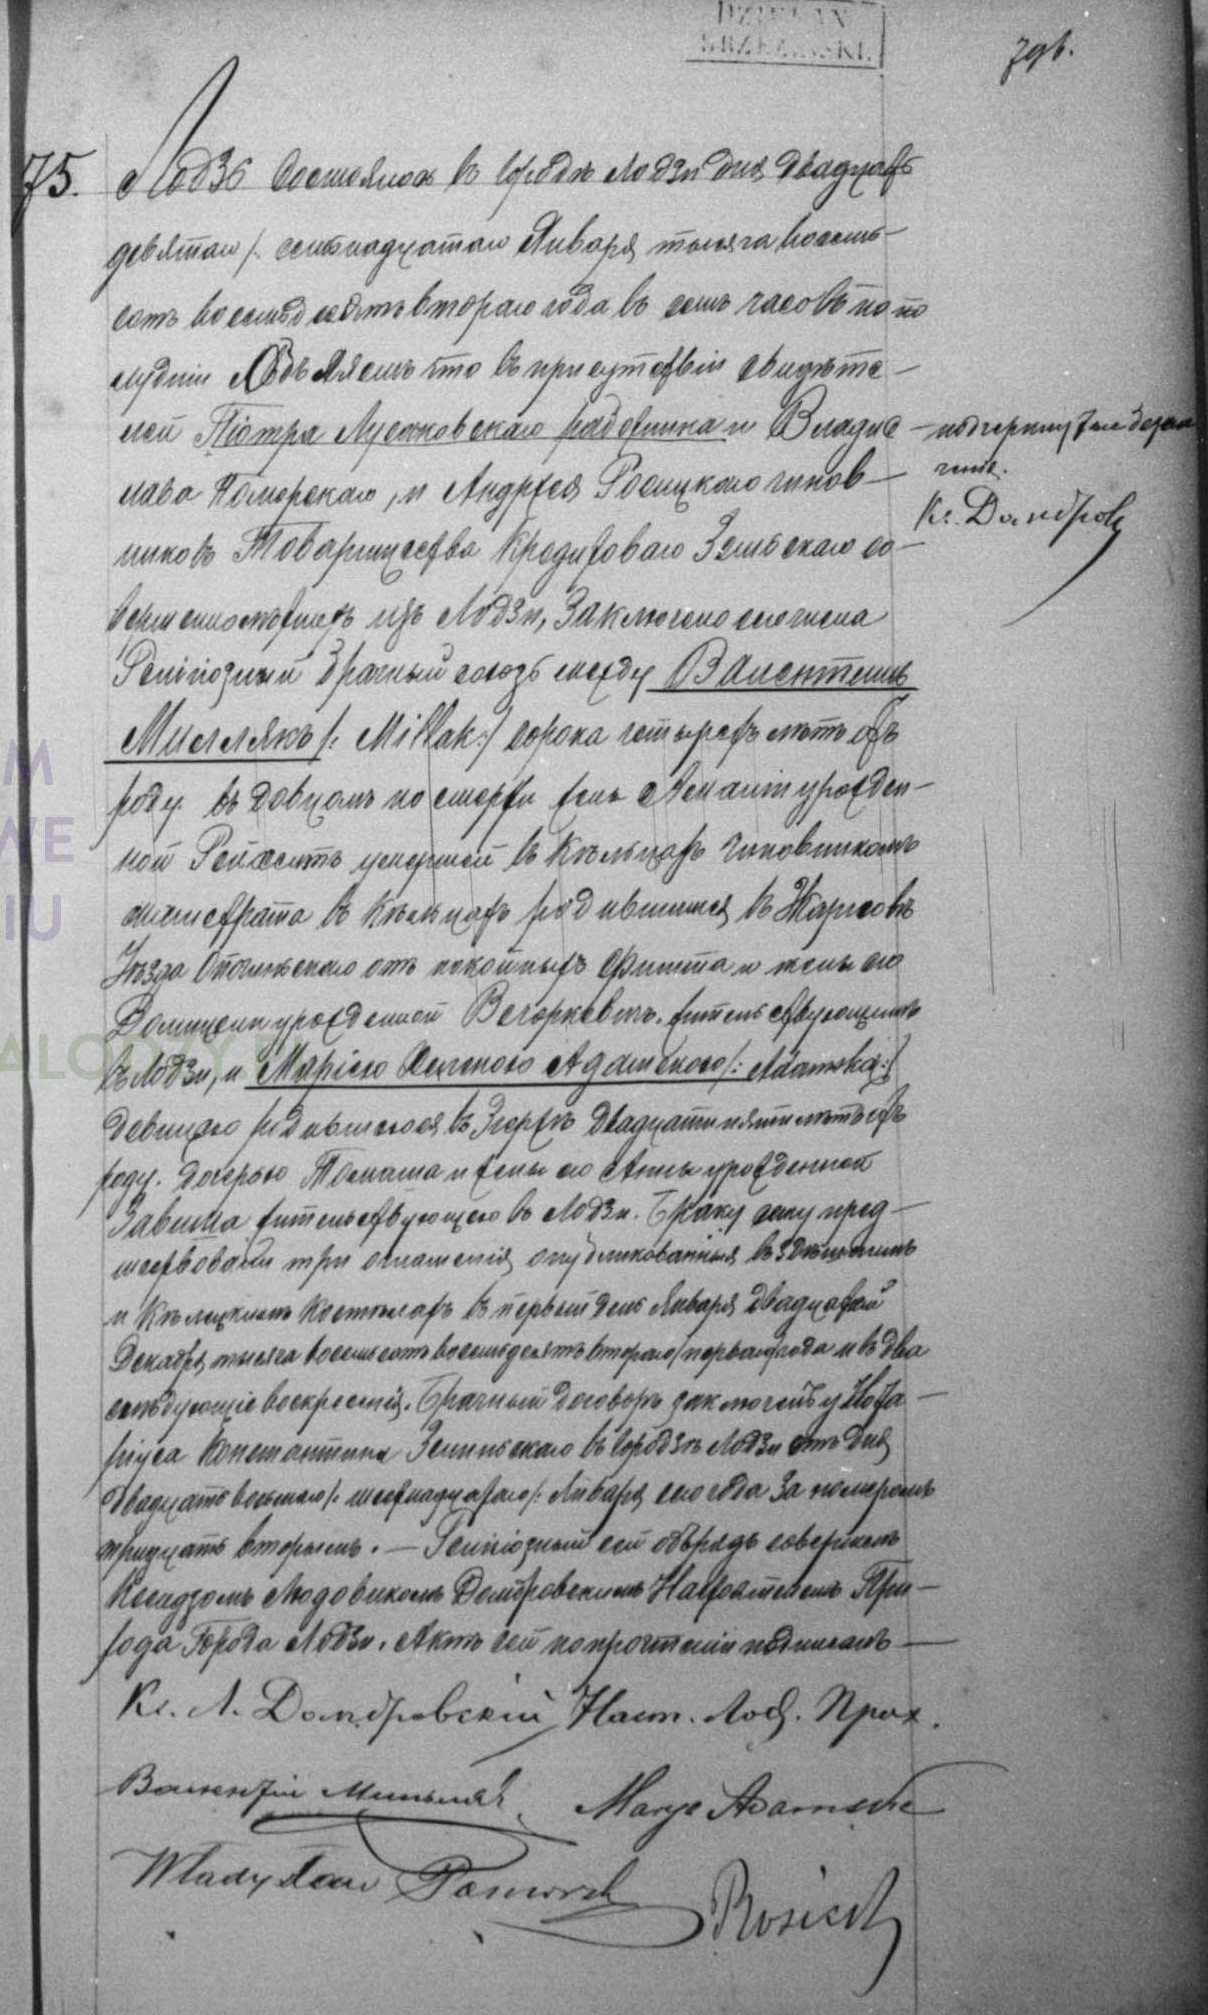 DZIEKAN
BRZEZIŃSKI
796.
75. Лодзь Состоялось въ городѣ Лодзи дня двадцать
девятаго /: семнадцатаго Января тысяча восемь-
сотъ восемьдесятъ втораго года въ семь часовъ по по
лудни Объявляемъ что въ присутствіи свидѣте-
лей Піотра Лусаковскаго работника и Владис-
лава Поморскаго, и Андрея Росицкаго чинов-
никовъ Товарищества Кредитоваго Земскаго со-
вершеннолѣтнихъ изъ Лодзи, Заключено сего числа
Религіозный брачный союзъ между Валентемъ
Миллякъ /: Millak :/ сорока четырехъ лѣтъ отъ
роду вдовцомъ по смерти жены урожден-
ной умершей въ Кѣльцахъ чиновникомъ
магистрата въ Кѣльцахъ родившимся въ Жарновѣ
Уѣзда Опочинскаго отъ покойныхъ и жены его
урожденной Вечоркевичъ. жительствующимъ
въ Лодзи, и Маріею Адамскою /: Adamska :/
девицею родившеюся въ Згержѣ двадцати пяти лѣтъ отъ
роду. дочерью Томаша и жены его Анны урожденной
Завила жительствующею въ Лодзи. Браку сему пред-
шествовали три оглашенія опубликованныя въ здѣшнемъ
и Кѣлецкомъ костелахъ въ первый день Января двадцатый
Декабря тысяча восемьсотъ восемьдесятъ втораго /перваго/ года и въ два
слѣдующіе воскресенія. Брачный договоръ заключенъ у Нота-
ріуса Константина въ городѣ Лодзи отъ дня
двадцать восьмаго /: шестнадцатаго /: Января сего года за номеромъ
тридцать вторымъ. — Религіозный сей обрядъ совершенъ
Ксендзомъ Людовикомъ Домбровскимъ Настоятелемъ При-
хода Города Лодзи. Актъ сей по прочтеніи подписанъ —
Кс. Л. Домбровскій Наст. Лодз. Прих.
Валентій Миллякъ Marya Adamska
Władysław Pomorski Rosicki
— подчеркнутое безъ зна
ченія.
Кс. Домбров